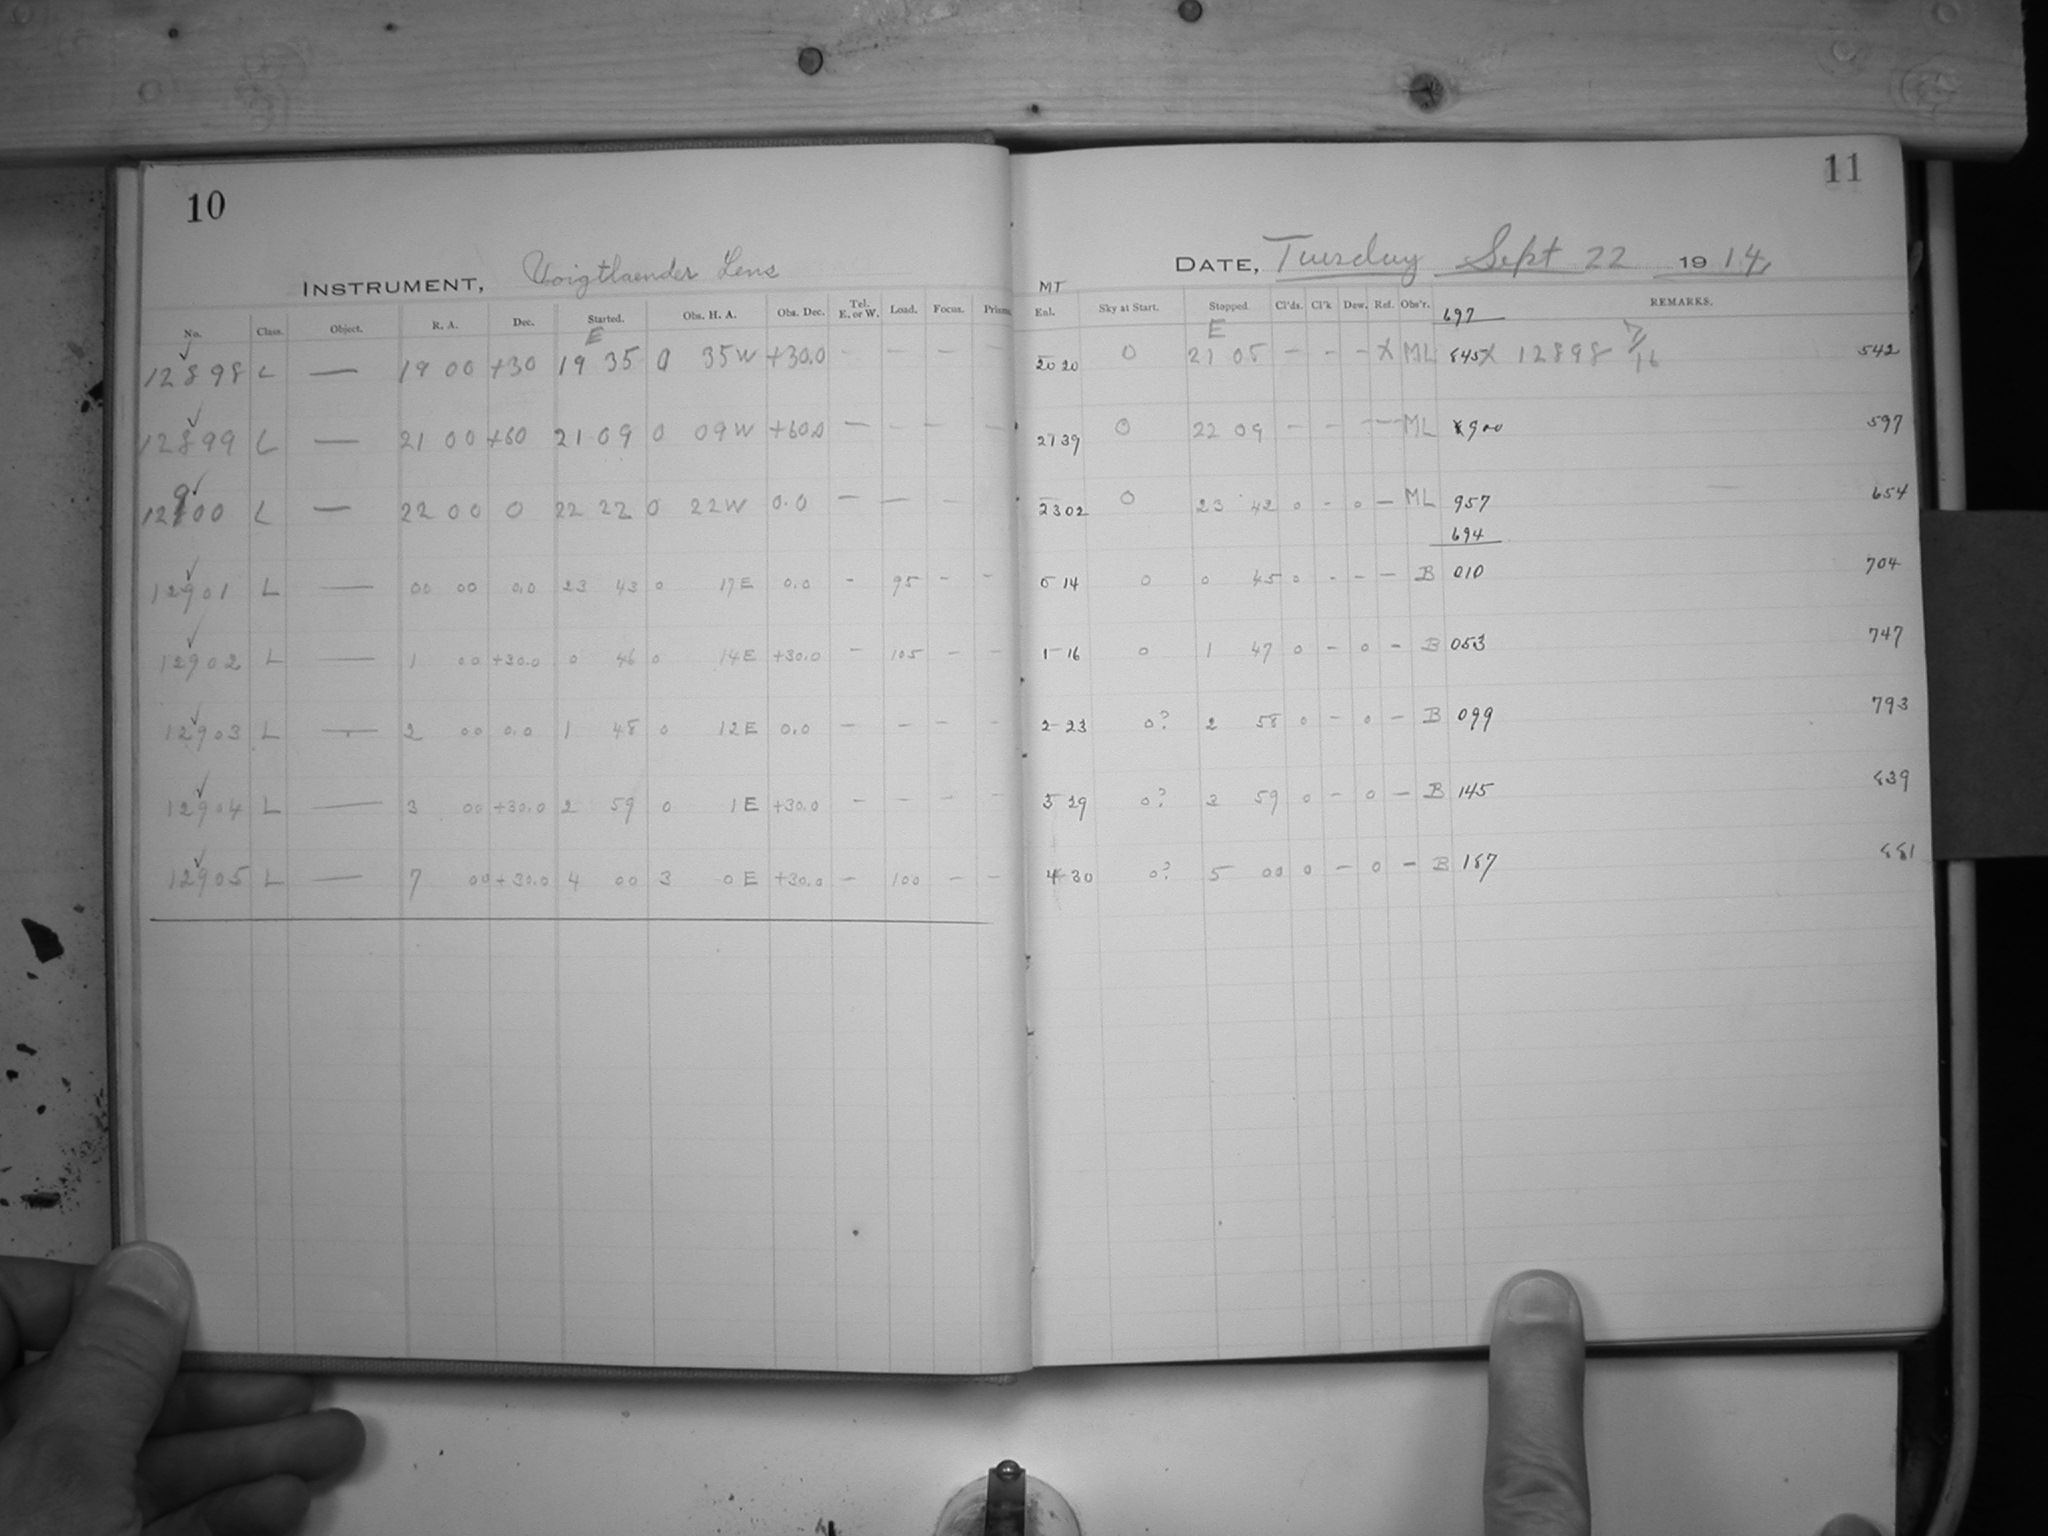 10
INSTRUMENT, Voigtlaender Lens
No. Class. Object. R. A. Dec. Started. Obs. H. A. Obs. Dec. Tel. E. or W. Load. Focus. Prisms
E
12898 L — 19 00 +30 19 35 0 35W +30.0 — — — —
12899 L — 21 00 +60 21 09 0 09W +60.0 — — — —
12900 L — 22 00 0 22 22 0 22W 0.0 — — — —
12901 L — 00 00 0.0 23 43 0 17E 0.0 - 95 - -
12902 L — 1 00 +30.0 0 46 0 14E +30.0 - 105 - -
12903 L — 2 00 0.0 1 48 0 12E 0.0 - - - -
12904 L — 3 00 +30.0 2 59 0 1E +30.0 - - - -
12905 L — 7 00 +30.0 4 00 3 0E +30.0 - 100 - -
11
DATE, Tuesday Sept 22 1914,
MT
Exl. Sky at Start. Stopped Cl'ds. Cl'k Dew. Ref. Obs'r. REMARKS.
E 697
20 20 0 21 05 - - - X ML 845 X 12898 542
21 39 0 22 09 - - - - ML 900 597
23 02 0 23 42 0 - 0 - ML 957 654
694
0 14 0 0 45 0 - - - B 010 704
1 16 0 1 47 0 - 0 - B 053 747
2 23 0? 2 58 0 - 0 - B 099 793
3 29 0? 3 59 0 - 0 - B 145 839
4 30 0? 5 00 0 - 0 - B 187 881